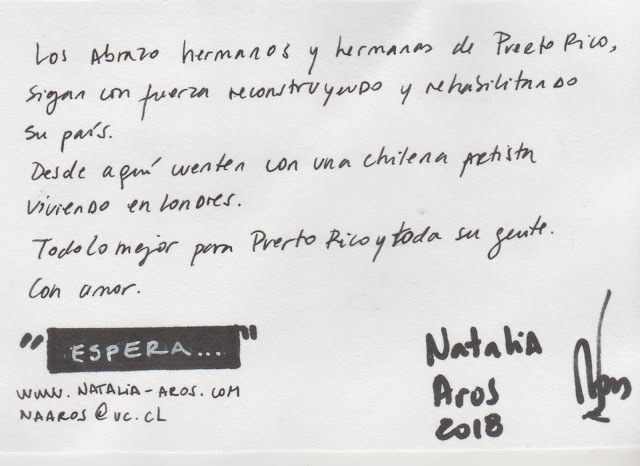 Los Abrazo hermanos y hermanas de Puerto Rico,
sigan con fuerza reconstruyendo y rehabilitando
su país.
Desde aquí cuenten con una chilena Artista
viviendo en Londres.
Todo lo mejor para Puerto Rico y toda su gente.
Con amor.
"ESPERA..."
www.NATALIA-AROS.COM
NAAROS@UC.CL
NataliA
Aros
2018